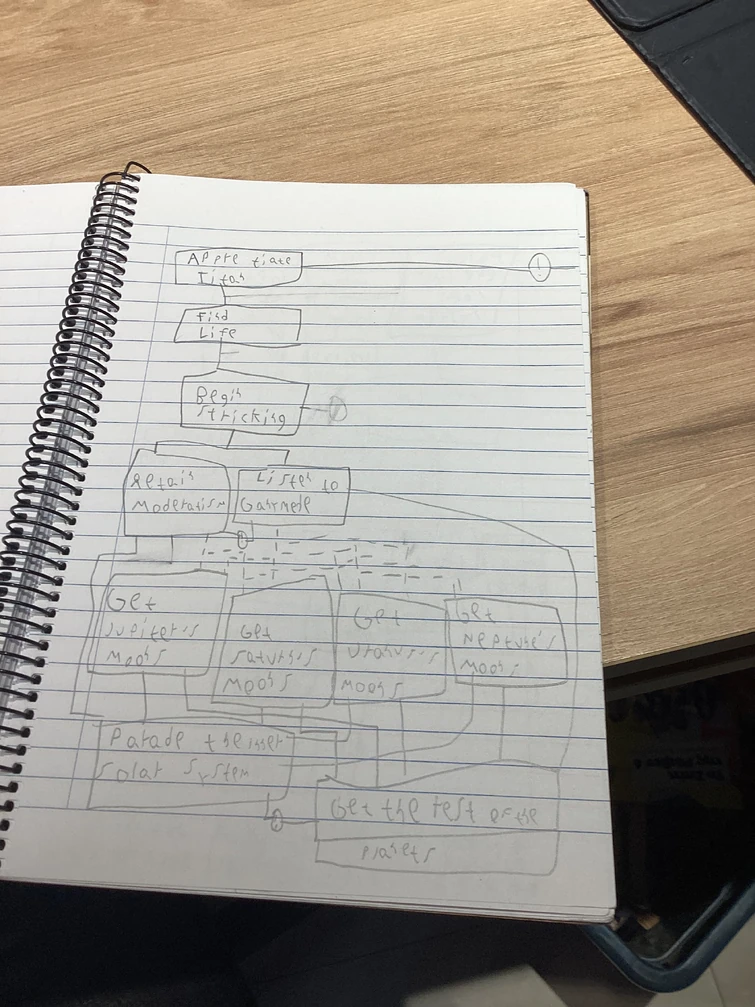 Appreciate
Titan
Find
Life
Begin
Stricking
!
Retain
Moderatism
Listen to
Ganymede
Get
Jupiter's
Moons
Get
Saturn's
Moons
Get
Uranus's
Moons
Get
Neptune's
Moons
Parade the inner
Solar System
Get the rest of the
Planets